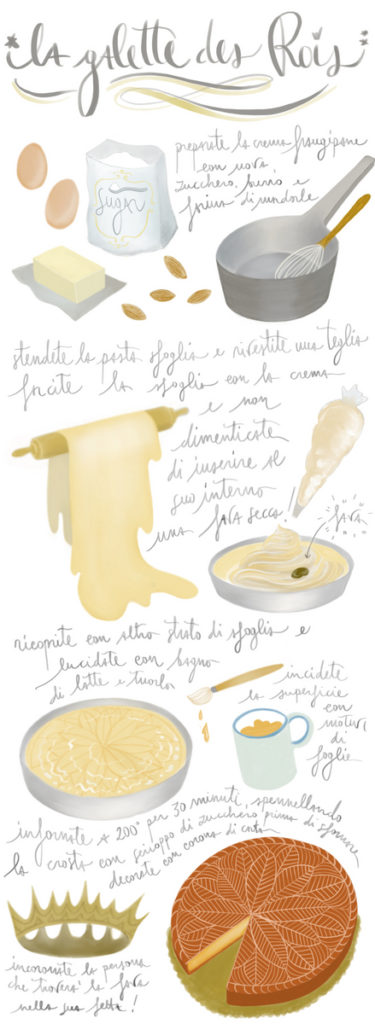 la galette des Rois
preparate la crema frangipane
con uova
zucchero, burro e
farina di mandorle
Sugar
stendete la pasta sfoglia e rivestite una teglia
farcite la sfoglia con la crema
e non
dimenticate
di inserire al
suo interno
una fava secca!
fava
ricoprite con altro strato di sfoglia e
lucidate con bagno
di latte e tuorlo
incidete
la superficie
con
motivi
di
foglie
infornate a 200° per 30 minuti, spennellando
la crosta con sciroppo di zucchero prima di sfornare
decorate con corona di carta
incoronate la persona
che troverà la fava
nella sua fetta!